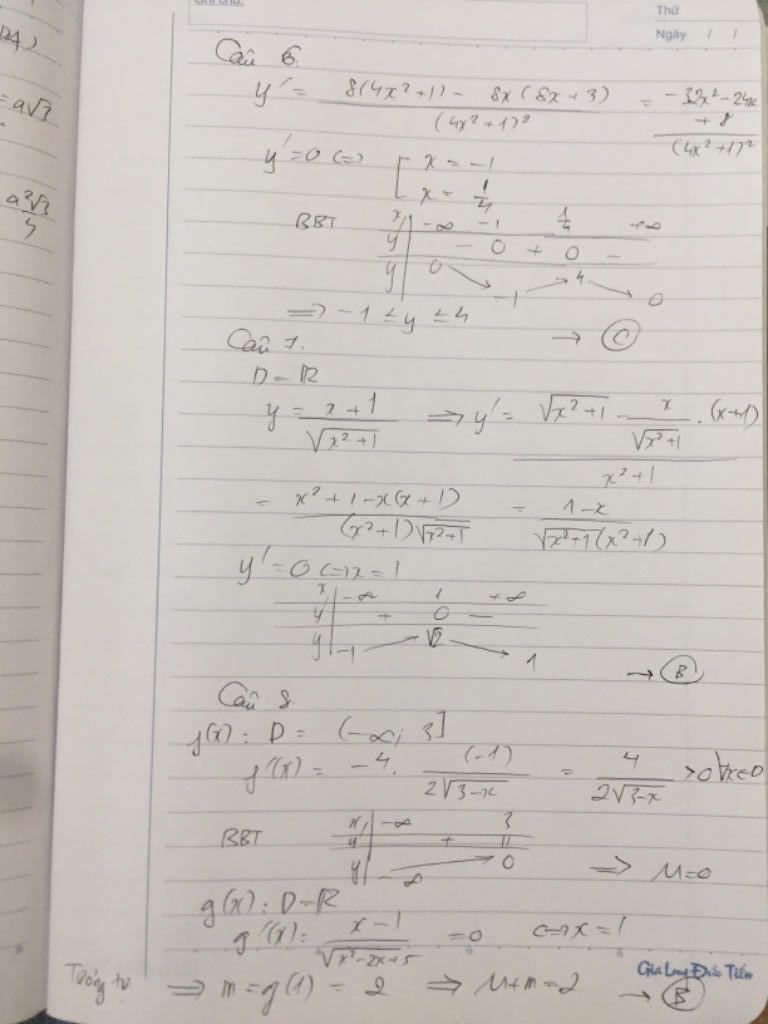 Ghi chú:
Thứ
Ngày / /
= a√3
a²√3/4
Câu 6
y' = (8(4x²+1) - 8x(8x+3))/(4x²+1)² = (-32x²-24x+8)/(4x²+1)²
y' = 0 <=> [ x = -1
x = 1/4
BBT
x | -∞ -1 1/4 +∞
y' | - 0 + 0 -
y | 0 ↘ -1 ↗ 4 ↘ 0
=> -1 ≤ y ≤ 4 → C
Câu 7.
D = R
y = (x+1)/√(x²+1) => y' = (√(x²+1) - x/√(x²+1) . (x+1))/(x²+1)
= (x²+1-x(x+1))/((x²+1)√(x²+1)) = (1-x)/(√(x²+1)(x²+1))
y' = 0 <=> x = 1
x | -∞ 1 +∞
y' | + 0 -
y | -1 ↗ √2 ↘ 1 → B
Câu 8.
f(x): D = (-∞; 3]
f'(x) = -4. (-1)/(2√(3-x)) = 4/(2√(3-x)) >0 ∀x∈D
BBT
x | -∞ 3
y' | + ||
y | -∞ ↗ 0 => M=0
g(x): D=R
g'(x) = (x-1)/√(x²-2x+5) = 0 <=> x = 1
Tương tự => m = g(1) = 2 => M+m=2 → B
Gia Long Đức Tiến